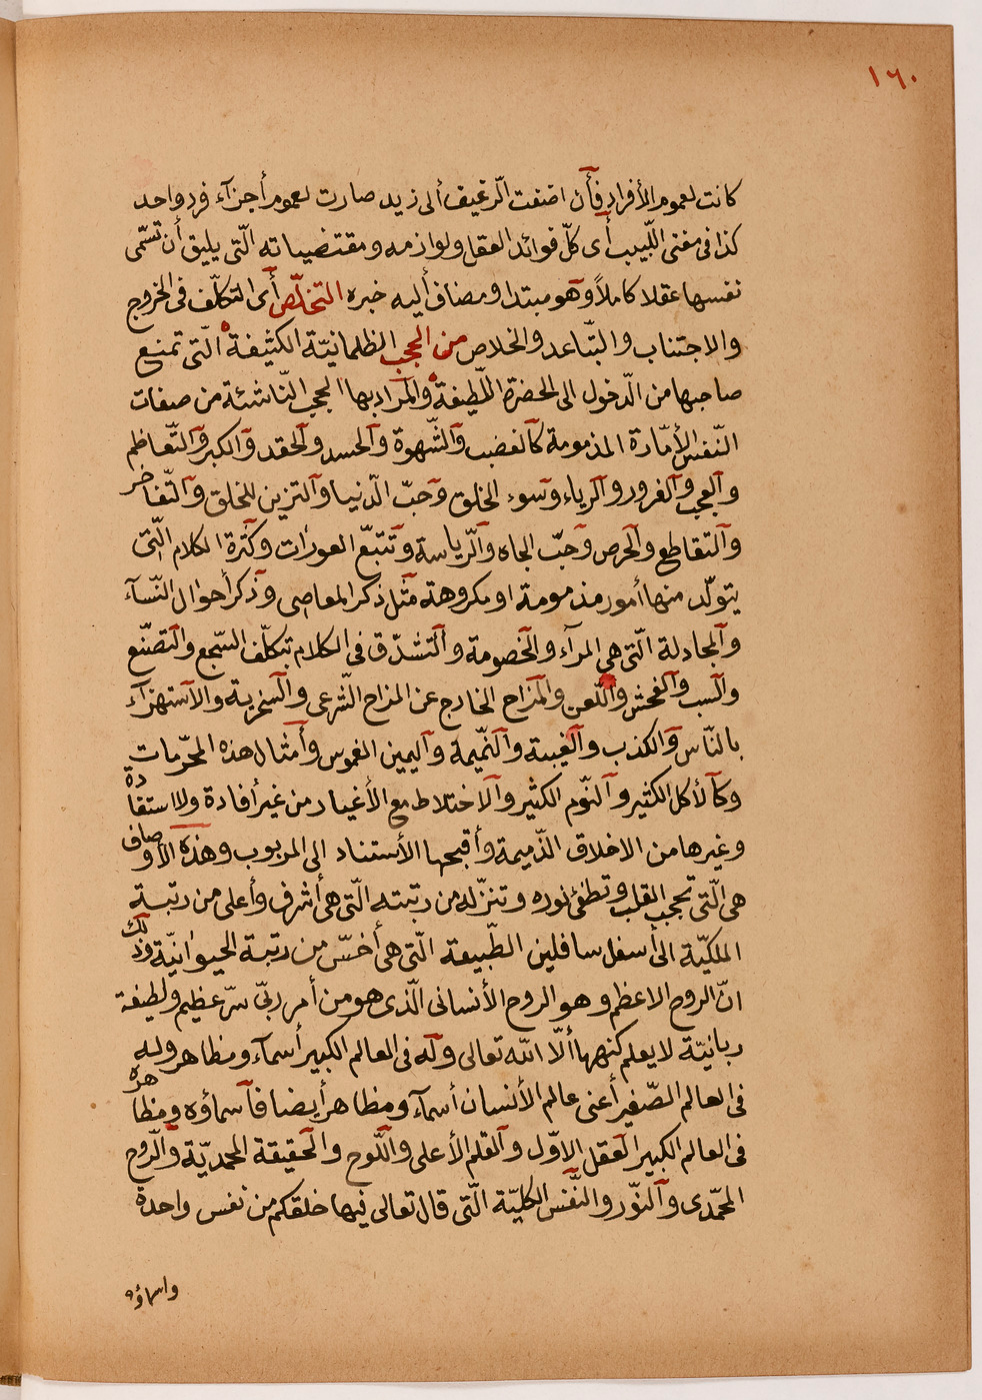 ١٦٠
كانت لعموم الأفراد فأن اضفت الرّغيف ألى زيد صارت لعموم أجزآء فرد واحد
كذا فى مغنى اللّبيب أى كلّ فوائد العقل ولوازمه ومقتضياته الّتى يليق أن تسمّى
نفسها عقلا كاملاً وهو مبتدا ومضاف أليه خبره التخلّص أى التكلّف فى الخروج
والاجتناب والتّباعد والخلاص من الحجب الظلمانيّة الكثيفة الّتى تمنع
صاحبها من الّدخول الى الحضرة اللّطيفة والمراد بها الحجب النّاشئة من صفات
النّفس الأمّارة المذمومة كالغضب والشّهوة والحسد والحقد والكبر والتّعاظم
والعجب والغرور والرياء وسوء الخلق وحبّ الدّنيا والتزين للخلق والتّفاخر
والتقاطع والحرص وحبّ الجاه والرّياسة وتتبّع العورات وكثرة الكلام الّتى
يتولّد منها أمور مذمومة او مكروهة مثل ذكر المعاصى وذكر أحوال النّسآء
والمجادلة الّتى هى المرآء والخصومة والتشدّق فى الكلام بتكلّف السّجع والتصنّع
والسب والفحش واللّعن والمزاح الخارج عن المزاح الشّرعى والسخرية والاستهزآء
بالنّاس والكذب والغيبة والنّميمة واليمين الغموس وأمثال هذه المحرّمات
وكالأكل الكثير والنّوم الكثير والاختلاط مع الأغيار من غير أفادة ولا استفادة
وغيرها من الاخلاق الذّميمة وأقبحها الأستناد الى المربوب وهذه الأوصاف
هى الّتى تحجب القلب وتطفئ نوره وتنزّله من رتبته الّتى هى أشرف وأعلى من رتبة
الملكيّة الى أسفل سافلين الطّبيعة الّتى هى أخسّ من رتبة الحيوانيّة وذلك
انّ الروح الاعظم وهو الروح الأنسانى الّذى هو من أمر ربّى سرّ عظيم ولطيفة
ربانيّة لا يعلم كنهها ألّا اللّه تعالى وله فى العالم الكبير أسمآء ومظاهر وله
فى العالم الصّغير أعنى عالم الأنسان أسمآء ومظاهر أيضا فأسماؤه ومظاهره
فى العالم الكبير العقل الاوّل والقلم الأعلى واللّوح والحقيقة المحمديّة والرّوح
المحمّدى والنّور والنّفس الكليّة الّتى قال تعالى فيها خلقكم من نفس واحدة
واسماؤه